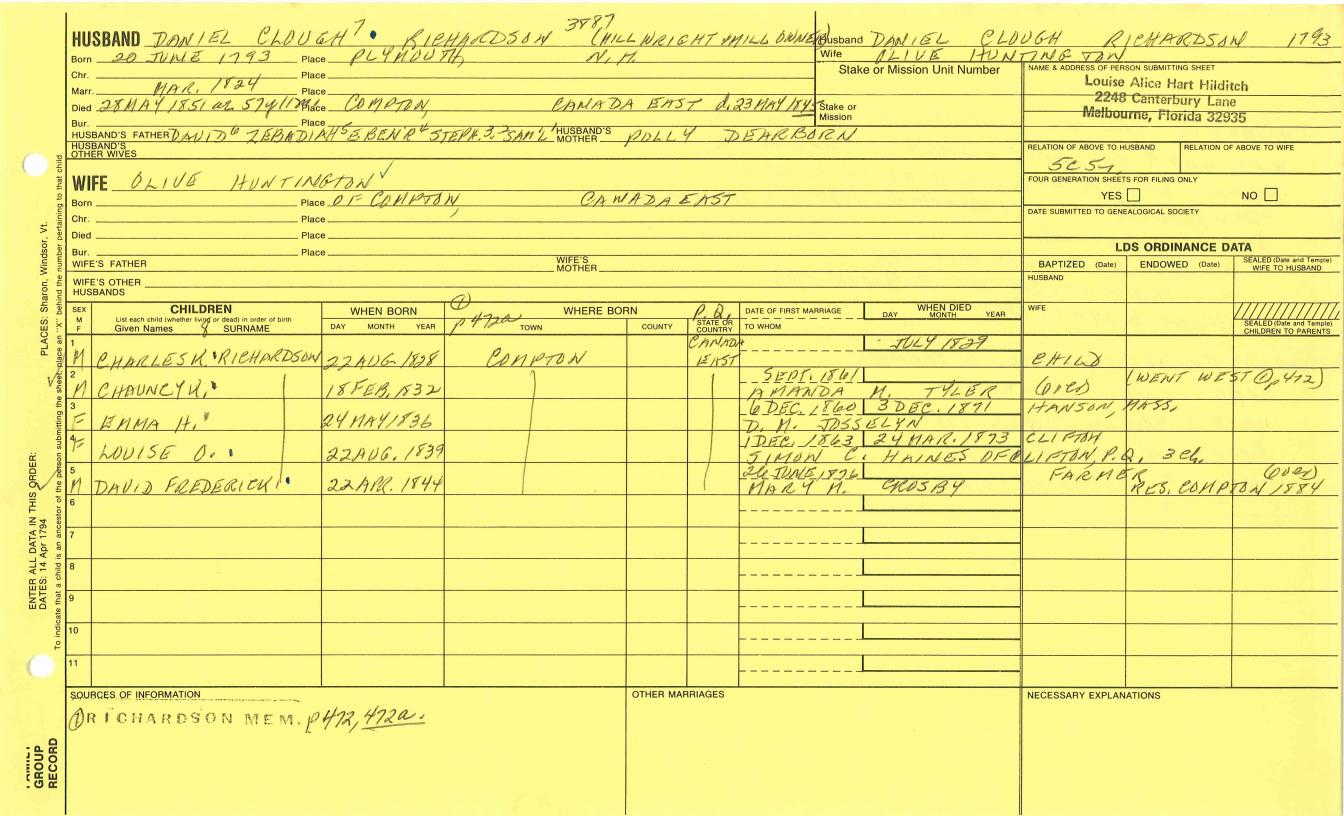 3887
HUSBAND DANIEL CLOUGH 7 RICHARDSON (MILLWRIGHT & MILL OWNER)
Husband DANIEL CLOUGH RICHARDSON 1793
Wife OLIVE HUNTINGTON
Born 20 JUNE 1793 Place PLYMOUTH, N.H.
Chr. Place
Marr. MAR. 1824 Place
Died 28 MAY 1851 Place COMPTON, CANADA EAST d. 23 MAY
Bur. Place
HUSBAND'S FATHER DAVID 6 ZEBADIAH 5 EBEN'R 4 STEPH. 3 SAM'L 1 HUSBAND'S MOTHER POLLY DEARBORN
HUSBAND'S OTHER WIVES
Stake or Mission Unit Number
Stake or Mission
NAME & ADDRESS OF PERSON SUBMITTING SHEET
Louise Alice Hart Hilditch
2248 Canterbury Lane
Melbourne, Florida 32935
RELATION OF ABOVE TO HUSBAND RELATION OF ABOVE TO WIFE
FOUR GENERATION SHEETS FOR FILING ONLY
YES NO
DATE SUBMITTED TO GENEALOGICAL SOCIETY
WIFE OLIVE HUNTINGTON ✓
Born Place OF COMPTON, CANADA EAST
Chr. Place
Died Place
Bur. Place
WIFE'S FATHER WIFE'S MOTHER
WIFE'S OTHER HUSBANDS
LDS ORDINANCE DATA
BAPTIZED (Date) ENDOWED (Date) SEALED (Date and Temple) WIFE TO HUSBAND
HUSBAND
WIFE
SEALED (Date and Temple) CHILDREN TO PARENTS
SEX M F
CHILDREN
List each child (whether living or dead) in order of birth
Given Names & SURNAME
WHEN BORN
DAY MONTH YEAR
① p 472a
WHERE BORN
TOWN COUNTY P.Q. STATE OR COUNTRY
DATE OF FIRST MARRIAGE
TO WHOM
WHEN DIED
DAY MONTH YEAR
1 M CHARLES K. RICHARDSON 22 AUG. 1828 COMPTON CANADA EAST JULY 1829 CHILD
2 M CHAUNCY K. 18 FEB. 1832 SEPT. 1861 AMANDA M. TYLER (over) (WENT WEST ① p 472)
3 F EMMA H. 24 MAY 1836 6 DEC. 1860 3 DEC. 1871 D. M. JOSSELYN HANSON, MASS.
4 F LOUISE O. 22 AUG. 1839 1 DEC. 1863 24 MAR. 1873 CLIFTON
SIMON C. HAINES OF CLIFTON, P.Q. 3 ch.
5 M DAVID FREDERICK 22 APR. 1844 26 JUNE, 1876 MARY M. CROSBY FARMER (over)
RES. COMPTON 1884
6
7
8
9
10
11
SOURCES OF INFORMATION
① RICHARDSON MEM. p 472, 472a.
OTHER MARRIAGES
NECESSARY EXPLANATIONS
ENTER ALL DATA IN THIS ORDER:
DATES: 14 Apr 1794
PLACES: Sharon, Windsor, Vt.
To indicate that a child is an ancestor of the person submitting the sheet, place an "X" behind the number pertaining to that child.
FAMILY
GROUP
RECORD